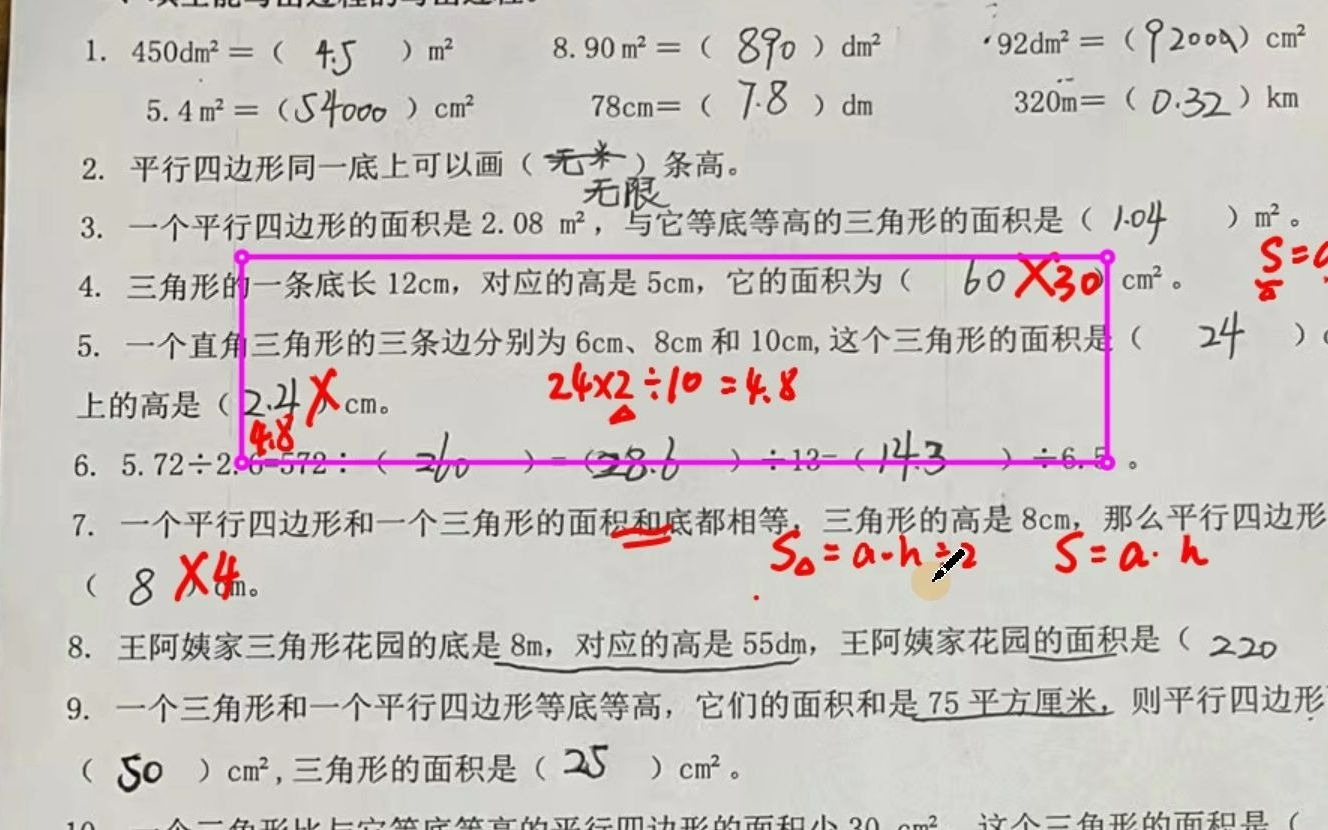 1. 450dm²=( 4.5 )m² 8.90m²=( 890 )dm² 92dm²=( 92000 )cm²
5.4m²=( 54000 )cm² 78cm=( 7.8 )dm 320m=( 0.32 )km
2. 平行四边形同一底上可以画( )条高。
无限
3. 一个平行四边形的面积是2.08 m²,与它等底等高的三角形的面积是( 1.04 )m²。
4. 三角形的一条底长12cm,对应的高是5cm,它的面积为( 60 ×30 )cm²。 S=
5. 一个直角三角形的三条边分别为6cm、8cm和10cm,这个三角形的面积是( 24 )
上的高是( 2.4 × )cm。 24×2÷10=4.8
4.8
6. 5.72÷2.6=572:( 260 )=( 28.6 )÷13=( 14.3 )÷6.5 。
7. 一个平行四边形和一个三角形的面积和底都相等,三角形的高是8cm,那么平行四边形
S△=a·h÷2 S=a·h
( 8 ×4 )cm。
8. 王阿姨家三角形花园的底是8m,对应的高是55dm,王阿姨家花园的面积是( 220
9. 一个三角形和一个平行四边形等底等高,它们的面积和是75平方厘米,则平行四边形
( 50 )cm²,三角形的面积是( 25 )cm²。
10. 一个三角形比与它等底等高的平行四边形的面积少30 cm²,这个三角形的面积是(